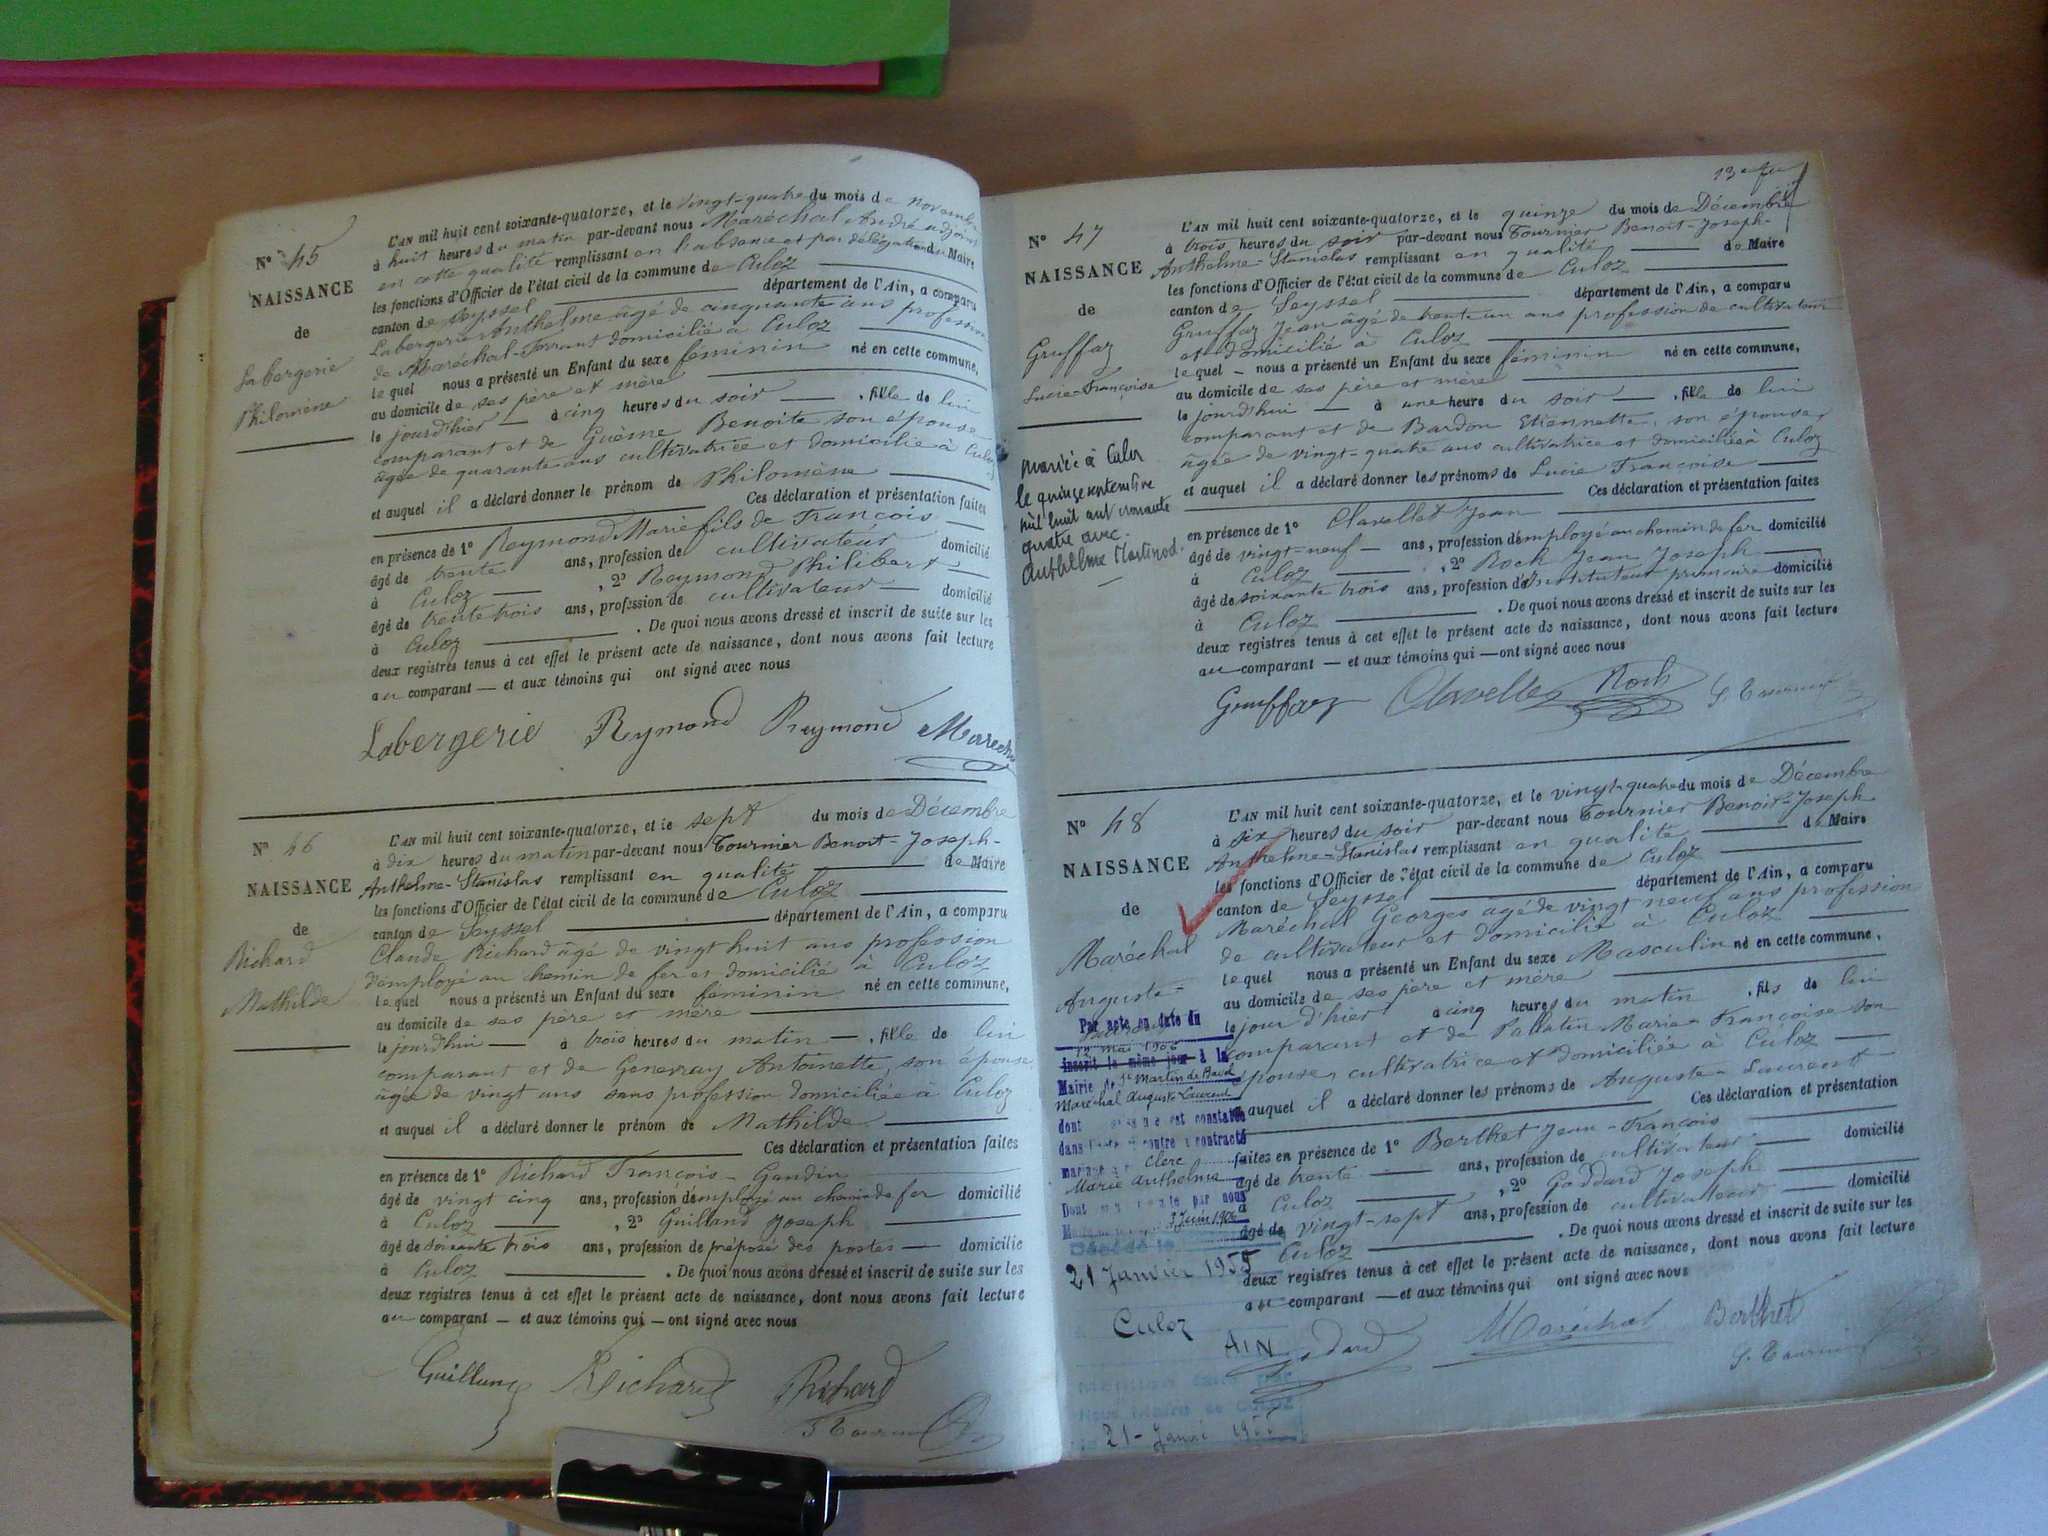 N° 45
NAISSANCE
de
Labergerie
Philomène
L'AN mil huit cent soixante-quatorze, et le vingt-quatre du mois de novembre
à huit heures du matin par-devant nous Maréchal André adjoint
en cette qualité remplissant en l'absence et par délégation du Maire
les fonctions d'Officier de l'état civil de la commune de Culoz
canton de Seyssel département de l'Ain, a comparu
Labergerie Anthelme âgé de cinquante ans profession
de Maréchal-Ferrant domicilié à Culoz
lequel nous a présenté un Enfant du sexe féminin né en cette commune,
au domicile de ses père et mère
le jourd'hier à cinq heures du soir , fille de lui
comparant et de Guème Benoite son épouse
âgée de quarante ans cultivatrice et domicilié à Culoz
et auquel il a déclaré donner le prénom de Philomène
Ces déclaration et présentation faites
en présence de 1° Reymond Marie fils de François
âgé de trente ans, profession de cultivateur domicilié
à Culoz , 2° Reymond Philibert
âgé de trente trois ans, profession de cultivateur domicilié
à Culoz . De quoi nous avons dressé et inscrit de suite sur les
deux registres tenus à cet effet le présent acte de naissance, dont nous avons fait lecture
au comparant — et aux témoins qui ont signé avec nous
Labergerie Reymond Reymond Marechal
N° 46
NAISSANCE
de
Richard
Mathilde
L'AN mil huit cent soixante-quatorze, et le sept du mois de Décembre
à dix heures du matin par-devant nous Tournier Benoit-Joseph-
Anthelme-Stanislas remplissant en qualité de Maire
les fonctions d'Officier de l'état civil de la commune de Culoz
canton de Seyssel département de l'Ain, a comparu
Claude Richard âgé de vingt huit ans profession
d'employé au chemin de fer et domicilié à Culoz
lequel nous a présenté un Enfant du sexe féminin né en cette commune,
au domicile de ses père et mère
le jourd'hui à trois heures du matin , fille de lui
comparant et de Genevray Antoinette, son épouse
âgée de vingt ans sans profession domiciliée à Culoz
et auquel il a déclaré donner le prénom de Mathilde
Ces déclaration et présentation faites
en présence de 1° Richard François
âgé de vingt cinq ans, profession d'employé au chemin de fer domicilié
à Culoz , 2° Guilland Joseph
âgé de soixante trois ans, profession de préposé des postes domicilié
à Culoz . De quoi nous avons dressé et inscrit de suite sur les
deux registres tenus à cet effet le présent acte de naissance, dont nous avons fait lecture
au comparant — et aux témoins qui — ont signé avec nous
Richard Richard
13e
N° 47
NAISSANCE
de
Gruffaz
Lucie-Françoise
Mariée à Culoz
le quinze septembre
mil huit cent nonante
quatre avec
Anthelme Martinod.
L'AN mil huit cent soixante-quatorze, et le quinze du mois de Décembre
à trois heures du soir par-devant nous Tournier Benoit-Joseph-
Anthelme-Stanislas remplissant en qualité de Maire
les fonctions d'Officier de l'état civil de la commune de Culoz
canton de Seyssel département de l'Ain, a comparu
Gruffaz Jean âgé de trente un ans profession de cultivateur
et domicilié à Culoz
lequel — nous a présenté un Enfant du sexe féminin né en cette commune,
au domicile de ses père et mère
le jourd'hui à une heure du soir , fille de lui
comparant et de Bardon Etiennette, son épouse,
âgée de vingt-quatre ans cultivatrice et domiciliée à Culoz
et auquel il a déclaré donner les prénoms de Lucie Françoise
Ces déclaration et présentation faites
en présence de 1° Clavellet Jean
âgé de vingt-neuf ans, profession d'employé au chemin de fer domicilié
à Culoz , 2° Roch Jean Joseph
âgé de soixante trois ans, profession d'Instituteur primaire domicilié
à Culoz . De quoi nous avons dressé et inscrit de suite sur les
deux registres tenus à cet effet le présent acte de naissance, dont nous avons fait lecture
au comparant — et aux témoins qui — ont signé avec nous
Gruffaz Clavellet Roch
N° 48
NAISSANCE
de
Maréchal
Auguste-
Par acte en date du
12 mai 1906
inscrit le même jour à la
Mairie de St Martin de Bavel
Maréchal Auguste Laurent
dont est constaté
Clerc
Marie Anthelme
par nous
3 Juin 1906
Décédé le
21 Janvier 1955
Culoz
AIN
Mention faite par
Nous Maire de Culoz
21 - Janv
L'AN mil huit cent soixante-quatorze, et le vingt-quatre du mois de Décembre
à six heures du soir par-devant nous Tournier Benoit-Joseph
Anthelme-Stanislas remplissant en qualité de Maire
les fonctions d'Officier de l'état civil de la commune de Culoz
canton de Seyssel département de l'Ain, a comparu
Maréchal Georges âgé de vingt neuf ans profession
de cultivateur et domicilié à Culoz
lequel nous a présenté un Enfant du sexe Masculin né en cette commune,
au domicile de ses père et mère
le jour d'hier à cinq heures du matin , fils de lui
comparant et de Pallatin Marie-Françoise son
épouse, cultivatrice et domiciliée à Culoz
auquel il a déclaré donner les prénoms de Auguste-Laurent
Ces déclaration et présentation
faites en présence de 1° Berthet Jean-François
âgé de trente ans, profession de cultivateur domicilié
à Culoz , 2° Goddard Joseph
âgé de vingt-sept ans, profession de cultivateur domicilié
Culoz . De quoi nous avons dressé et inscrit de suite sur les
deux registres tenus à cet effet le présent acte de naissance, dont nous avons fait lecture
au comparant — et aux témoins qui ont signé avec nous
Maréchal Berthet